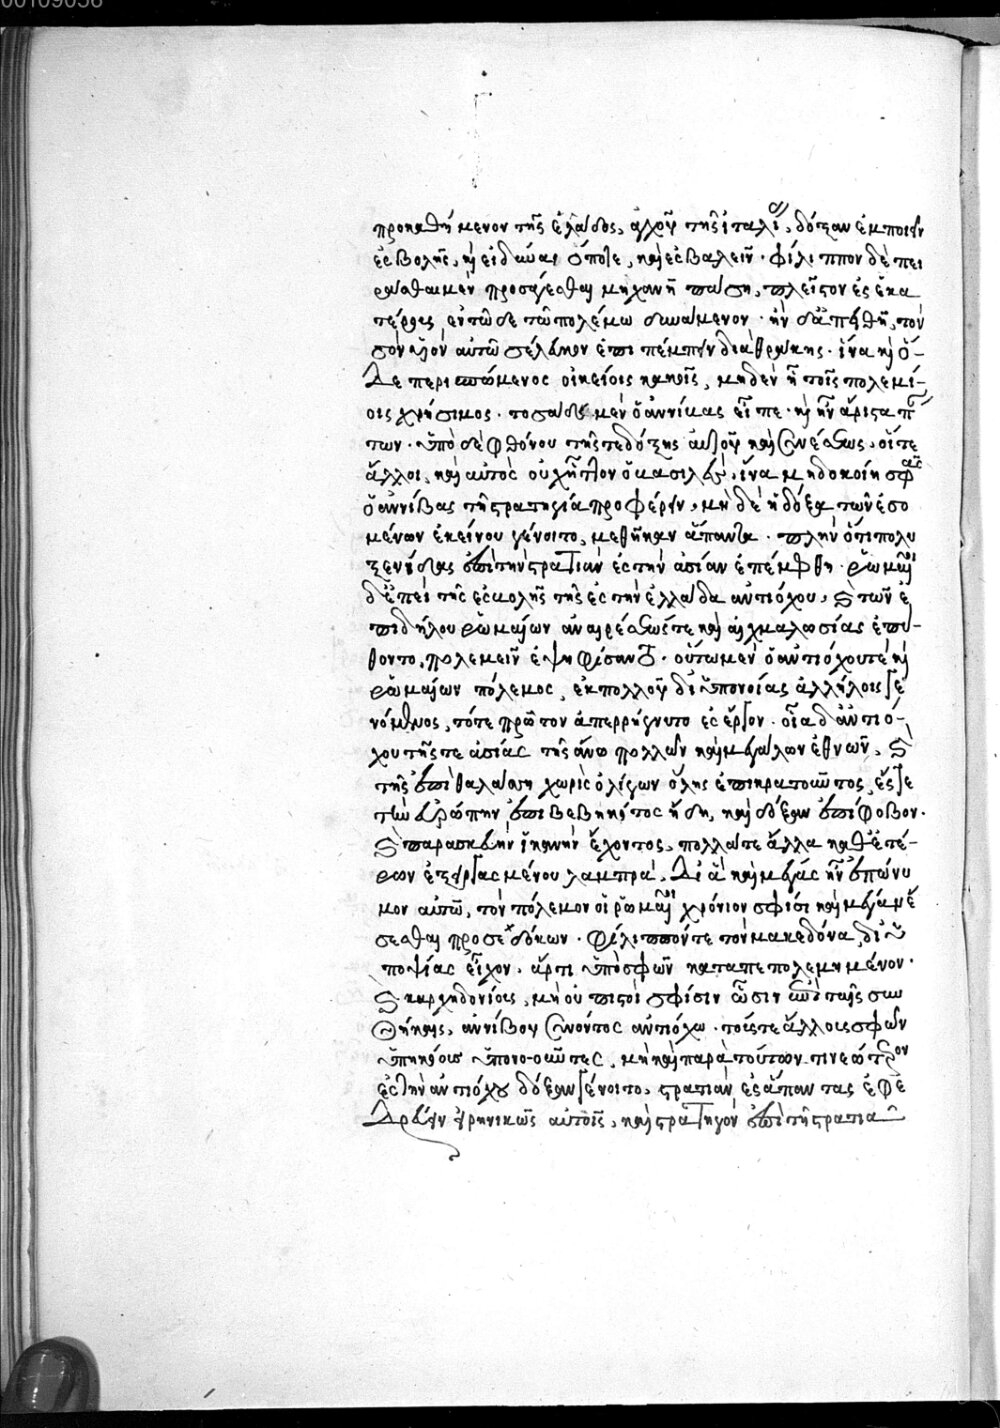 προκαθήμενον τῆς ἑλλάδος, ἀγχοῦ τῆς ἰταλίας, δόξαν ἐμποιεῖν
ἐσβολῆς, καὶ εἰ δύναιό ποτε, καὶ ἐσβαλεῖν. φίλιππον δὲ πει
ρᾶσθαι μὲν προσάγεσθαι μηχανῆ πάση, πλεῖστον ἐς ἑκα
τέρους ἐν τῶδε τῶ πολέμω δυνάμενον. ἢν δ' ἀπειθῆ, τὸν
σὸν υἱὸν αὐτῶ σέλευκον ἐπιπέμπειν διὰ θράκης. ἵνα καὶ ὅ-
δε περισπώμενος οἰκείοις κακοῖς, μηδὲν ἦ τοῖς πολεμί-
οις χρήσιμος. τοσάδε μὲν ὁ ἀννίβας εἶπε. καὶ ἦν ἄριστα πάν
των. ὑπὸ δὲ φθόνου τῆς τε δόξης αὐτοῦ καὶ συνέσεως, οἵ τε
ἄλλοι, καὶ αὐτὸς οὐχ ἧττον ὁ βασιλεὺς, ἵνα μὴ δοκοίη σφᾶς
ὁ ἀννίβας τῆ στρατηγία προφέρειν, μὴ δὲ ἡ δόξα τῶν ἐσο
μένων ἐκείνου γένοιτο, μεθῆκαν ἅπαντα. πλὴν ὅτι πολυ
ξενίδας ἐπὶ τὴν στρατιὰν ἐς τὴν ἀσίαν ἐπέμφθη. ῥωμαῖοι
δ' ἐπεὶ τῆς ἐσβολῆς τῆς ἐς τὴν ἑλλάδα ἀντιόχου, καὶ τῶν ἐ
πὶ δήλου ῥωμαίων ἀναιρέσεώς τε καὶ αἰχμαλωσίας ἐπύ-
θοντο, πολεμεῖν ἐψηφίσαντο. οὕτω μὲν ὁ ἀντιόχου τὲ καὶ
ῥωμαίων πόλεμος, ἐκ πολλοῦ δι' ὑπονοίας ἀλλήλοις γε
νόμενος, τότε πρῶτον ἀπερρήγνυτο ἐς ἔργον. οἷα δ' ἀντιό-
χου τῆς τε ἀσίας τῆς ἄνω πολλῶν καὶ μεγάλων ἐθνῶν, καὶ
τῆς ἐπὶ θαλάσση χωρὶς ὀλίγων ὅλης ἐπικρατοῦντος, ἔς τε
τὴν εὐρώπην ἐπιβεβηκότος ἤδη, καὶ δόξαν ἐπίφοβον.
καὶ παρασκευὴν ἱκανὴν ἔχοντος, πολλά τε ἄλλα καθ' ἑτέ-
ρων ἐξειργασμένου λαμπρά, δι' ἃ καὶ μέγας ἦν ἐπώνυ
μον αὐτῶ, τὸν πόλεμον οἱ ῥωμαῖοι χρόνιον σφίσι καὶ μέγαν ἔ
σεσθαι προσεδόκων. φίλιππόν τε τὸν μακεδόνα δι' ὑ
ποψίας εἶχον, ἄρτι ὑπὸ σφῶν καταπεπολεμημένον.
καὶ καρχηδονίους, μὴ οὐ πιστοὶ σφίσιν ὦσιν ἐπὶ ταῖς συν
θήκαις, ἀννίβου συνόντος ἀντιόχω. τούς τε ἄλλους σφῶν
ὑπηκόους ὑπονοοῦντες, μὴ καὶ παρὰ τούτων τι νεώτερον
ἐς τὴν ἀντιόχου δόξαν γένοιτο, στρατιὰν ἐς ἅπαντας ἐφε
δρεύειν εἰρηνικῶς αὐτοῖς, καὶ στρατηγὸν ἐπὶ τῆ στρατιᾶ